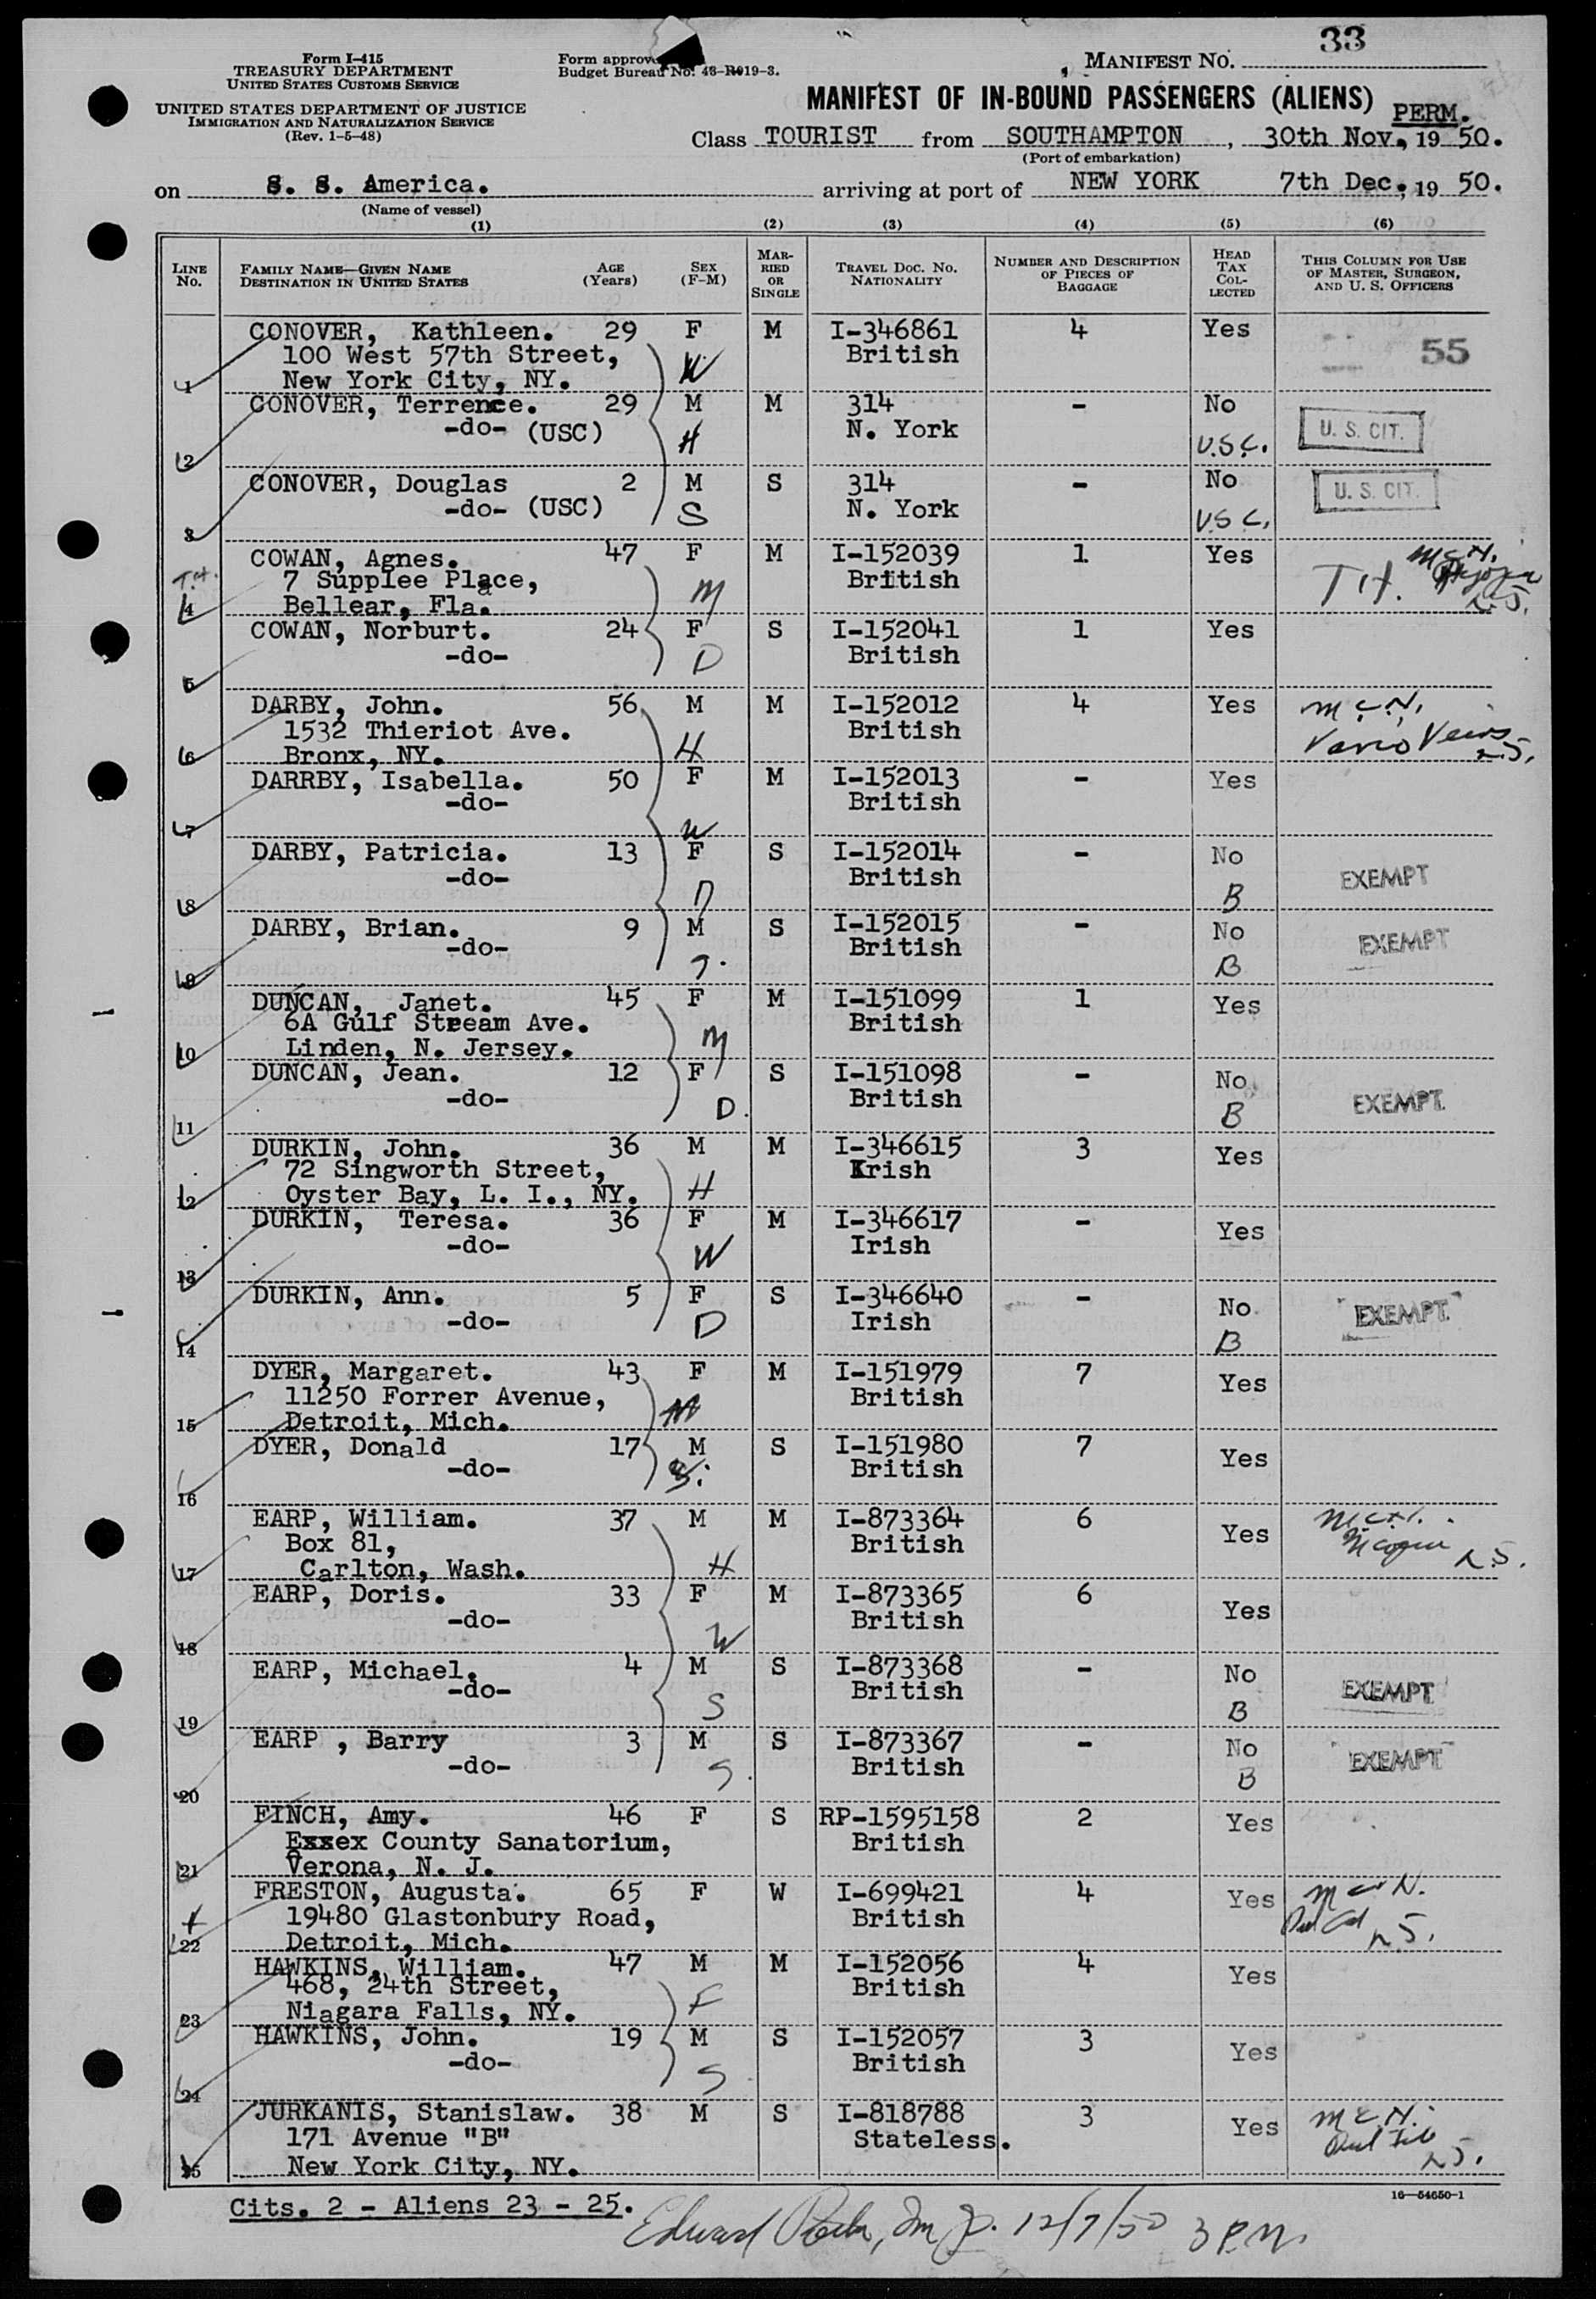 33
Form I-415
TREASURY DEPARTMENT
UNITED STATES CUSTOMS SERVICE
UNITED STATES DEPARTMENT OF JUSTICE
IMMIGRATION AND NATURALIZATION SERVICE
(Rev. 1-5-48)
Form approve
Budget Bureau No. 43-R019-3.
MANIFEST NO.
MANIFEST OF IN-BOUND PASSENGERS (ALIENS)
PERM.
Class TOURIST from SOUTHAMPTON, 30th Nov, 19 50.
(Port of embarkation)
on S. S. America. arriving at port of NEW YORK 7th Dec, 19 50.
(Name of vessel)
(1) (2) (3) (4) (5) (6)
LINE NO.
FAMILY NAME—GIVEN NAME DESTINATION IN UNITED STATES
AGE (Years)
SEX (F-M)
MARRIED OR SINGLE
TRAVEL DOC. NO. NATIONALITY
NUMBER AND DESCRIPTION OF PIECES OF BAGGAGE
HEAD TAX COLLECTED
THIS COLUMN FOR USE OF MASTER, SURGEON, AND U. S. OFFICERS
CONOVER, Kathleen. 29 F M I-346861 4 Yes
100 West 57th Street, W British 55
1 New York City, NY.
CONOVER, Terrence. 29 M M 314 - No
-do- (USC) H N. York U.S.C. U. S. CIT.
2
CONOVER, Douglas 2 M S 314 - No U. S. CIT.
-do- (USC) S N. York U S C.
3
COWAN, Agnes. 47 F M I-152039 1 Yes
T.H. 7 Supplee Place, M British T.H.
4 Bellear, Fla.
COWAN, Norburt. 24 F S I-152041 1 Yes
-do- D British
5
DARBY, John. 56 M M I-152012 4 Yes
1532 Thieriot Ave. H British
6 Bronx, NY.
DARRBY, Isabella. 50 F M I-152013 - Yes
-do- British
7 W
DARBY, Patricia. 13 F S I-152014 - No
-do- British EXEMPT
8 D B
DARBY, Brian. 9 M S I-152015 - No
-do- British EXEMPT
9 B
DUNCAN, Janet. 45 F M I-151099 1 Yes
6A Gulf Stream Ave. M British
10 Linden, N. Jersey.
DUNCAN, Jean. 12 F S I-151098 - No
-do- D. British B EXEMPT.
11
DURKIN, John. 36 M M I-346615 3 Yes
72 Singworth Street, Irish
12 Oyster Bay, L. I., NY. H
DURKIN, Teresa. 36 F M I-346617 - Yes
-do- W Irish
13
DURKIN, Ann. 5 F S I-346640 - No
-do- D Irish B EXEMPT.
14
DYER, Margaret. 43 F M I-151979 7 Yes
11250 Forrer Avenue, M British
15 Detroit, Mich.
DYER, Donald 17 M S I-151980 7 Yes
-do- British
16
EARP, William. 37 M M I-873364 6 Yes
Box 81, H British
17 Carlton, Wash.
EARP, Doris. 33 F M I-873365 6 Yes
-do- W British
18
EARP, Michael. 4 M S I-873368 - No
-do- S British B EXEMPT
19
EARP , Barry 3 M S I-873367 - No
-do- S British B EXEMPT
20
FINCH, Amy. 46 F S RP-1595158 2 Yes
Essex County Sanatorium, British
21 Verona, N. J.
FRESTON, Augusta. 65 F W I-699421 4 Yes
19480 Glastonbury Road, British
22 Detroit, Mich.
HAWKINS, William. 47 M M I-152056 4 Yes
468, 24th Street, F British
23 Niagara Falls, NY.
HAWKINS, John. 19 M S I-152057 3 Yes
-do- S British
24
JURKANIS, Stanislaw. 38 M S I-818788 3 Yes
171 Avenue "B" Stateless.
25 New York City, NY.
Cits. 2 - Aliens 23 - 25.
16—54650-1
Edward 12/7/50 3 P.M.